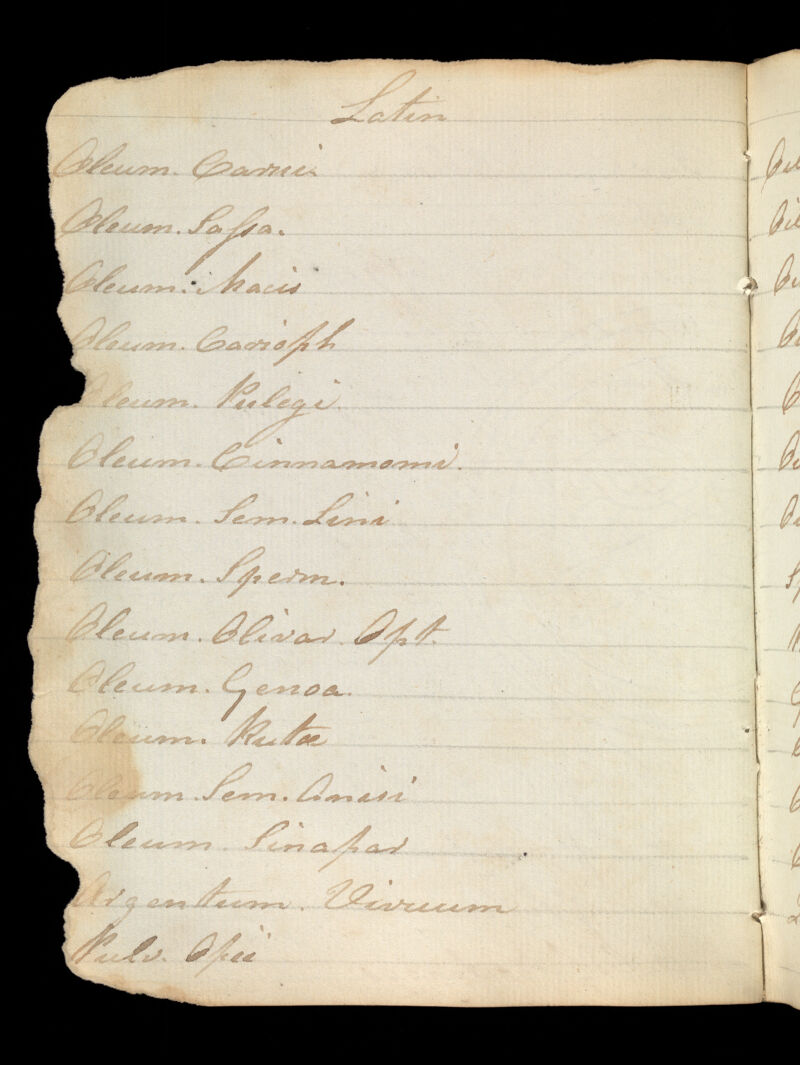 Latin
Oleum. Carui.
Oleum. Saſsa.
Oleum. Macis
Oleum. Carioph
Oleum. Pulegi
Oleum. Cinnamomi.
Oleum. Sem. Lini
Oleum. Sperm.
Oleum. Olivar Opt.
Oleum. Genoa.
Oleum. Rutæ
Oleum. Sem. Anisi
Oleum Sinapar
Argentum. Vivuum
Pulv. Opii